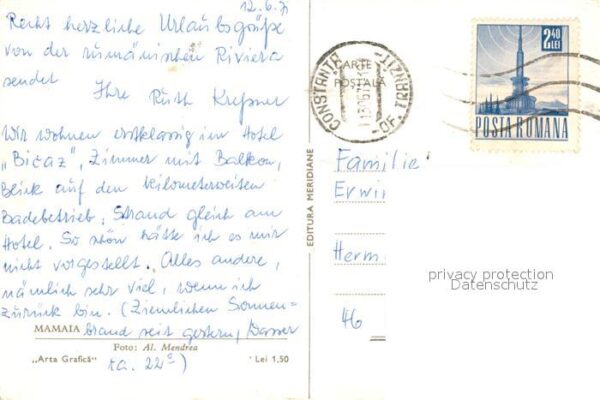 12.6.71
Recht herzliche Urlaubsgrüße
von der rumänischen Riviera
sendet
Ihre Ruth
Wir wohnen erstklassig im Hotel
„Bicaz", Zimmer mit Balkon,
Blick auf den kilometerweiten
Badebetrieb, Strand gleich am
Hotel. So schön hätte ich es mir
nicht vorgestellt. Alles andere,
nämlich sehr viel, wenn ich
zurück bin. (Ziemlichen Sonnen-
brand seit gestern, Wasser
ca. 22°)
MAMAIA
Foto: Al. Mendrea
„Arta Grafică"
Lei 1,50
EDITURA MERIDIANE
CARTE
POSTALA
CONSTANTA
TRANZIT
OF.
2,40
LEI
POSTA ROMANA
Familie
Erwin
Herm
46
privacy protection
Datenschutz